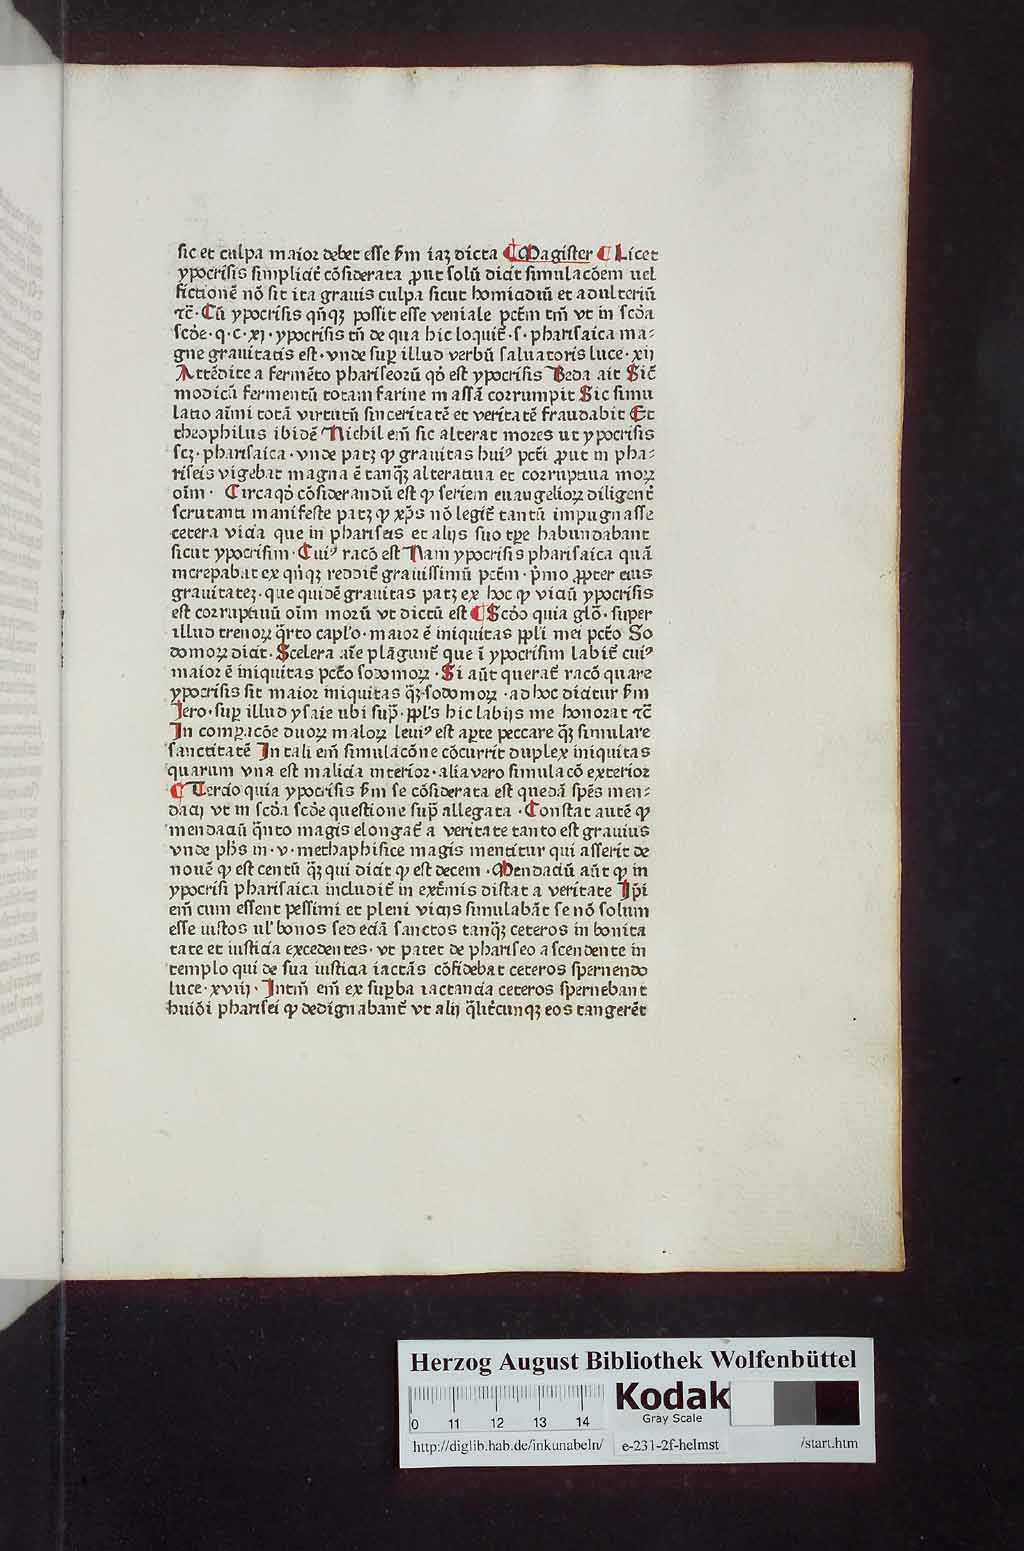 sic et culpa maior debet esse ẜm iaꝫ dicta ¶ Magister ¶ Licet
ypocrisis simplicit̃ cõsiderata ꝓut solũ dicit simulacõem uel
fictionẽ nõ sit ita grauis culpa sicut homicidiũ et adulteriũ
⁊c̃· Cũ ypocrisis qñqꝫ possit esse veniale pctm̃ tm̃ vt in scda
scde·q·c·xj·ypocrisis tñ de qua hic loquit̃·s·pharisaica ma⸗
gne grauitatis est·vnde suꝑ illud verbũ saluatoris luce·xij
Attẽdite a fermẽto phariseorũ qđ est ypocrisis Beda ait Sic̃
modicũ fermentũ totam farine massã corrumpit Sic simu
latio aĩmi totã virtutũ sinceritatẽ et veritatẽ fraudabit Et
theophilus ibidẽ Nichil em̃ sic alterat mores ut ypocrisis
scꝫ·pharisaica·vnde patꝫ ꝙ grauitas huiꝰ pcti ꝓut in pha⸗
riseis vigebat magna ẽ tanqꝫ̃ alteratiua et corruptiua moꝝ
oĩm· Circa qđ cõsiderandũ est ꝙ seriem euangelioꝝ diligent̃
scrutanti manifeste patꝫ ꝙ xp̃s nõ legit̃ tantũ impugnasse
cetera vicia que in phariseis et alijs suo tꝑe habundabant
sicut ypocrisim·Cuiꝰ racõ est Nam ypocrisis pharisaica quã
increpabat ex qñqꝫ reddit̃ grauissimũ pctm̃·p̃mo ꝓpter eius
grauitateꝫ·que quidẽ grauitas patꝫ ex hoc ꝙ viciũ ypocrisis
est corruptiuũ oĩm morũ vt dictũ est ¶ Scđo quia glõ·super
illud trenoꝝ q̃rto caplo·maior ẽ iniquitas ppli mei pcto So
domoꝝ dicit·Scelera aĩe plãgunt̃ que ĩ ypocrisim labit̃ cuiꝰ
maior ẽ iniquitas pcto sodomoꝝ·Si aũt querat̃ racõ quare
ypocrisis sit maior iniquitas qꝫ̃ sodomoꝝ·ad hoc dicitur ẜm
Jero·suꝑ illud ysaie ubi sup̃·ppls hic labijs me honorat ⁊c̃
In comꝑacõe duoꝝ maloꝝ leuiꝰ est aꝑte peccare qꝫ̃ simulare
sanctitatẽ In tali em̃ simulacõne cõcurrit duplex iniquitas
quarum vna est malicia interior·alia vero simulacõ exterior
¶ Tercio quia ypocrisis ẜm se cõsiderata est quedã sp̃es men⸗
dacij vt in scda scde questione sup̃ allegata·Constat autẽ ꝙ
mendaciũ q̃nto magis elongat̃ a veritate tanto est grauius
vnde ph̃s in·v·methaphisice magis mentitur qui asserit de
nouẽ ꝙ est centũ qꝫ̃ qui dicit ꝙ est decem·Mendaciũ aũt ꝙ in
ypocrisi pharisaica includit̃ in ext̃mis distat a veritate Ip̃i
em̃ cum essent pessimi et pleni vicijs simulabãt se nõ solum
esse iustos ul bonos sed eciã sanctos tanqꝫ̃ ceteros in bonita
tate et iusticia excedentes·vt patet de phariseo ascendente in
templo qui de sua iusticia iactãs cõfidebat ceteros spernendo
luce·xviij·Intm̃ em̃ ex suꝑba iactancia ceteros spernebant
huiõi pharisei ꝙ dedignabant̃ vt alij q̃lit̃cunqꝫ eos tangerẽt
Herzog August Bibliothek Wolfenbüttel
0 11 12 13 14
Kodak
Gray Scale
http://diglib.hab.de/inkunabeln/ e-231-2f-helmst /start.htm